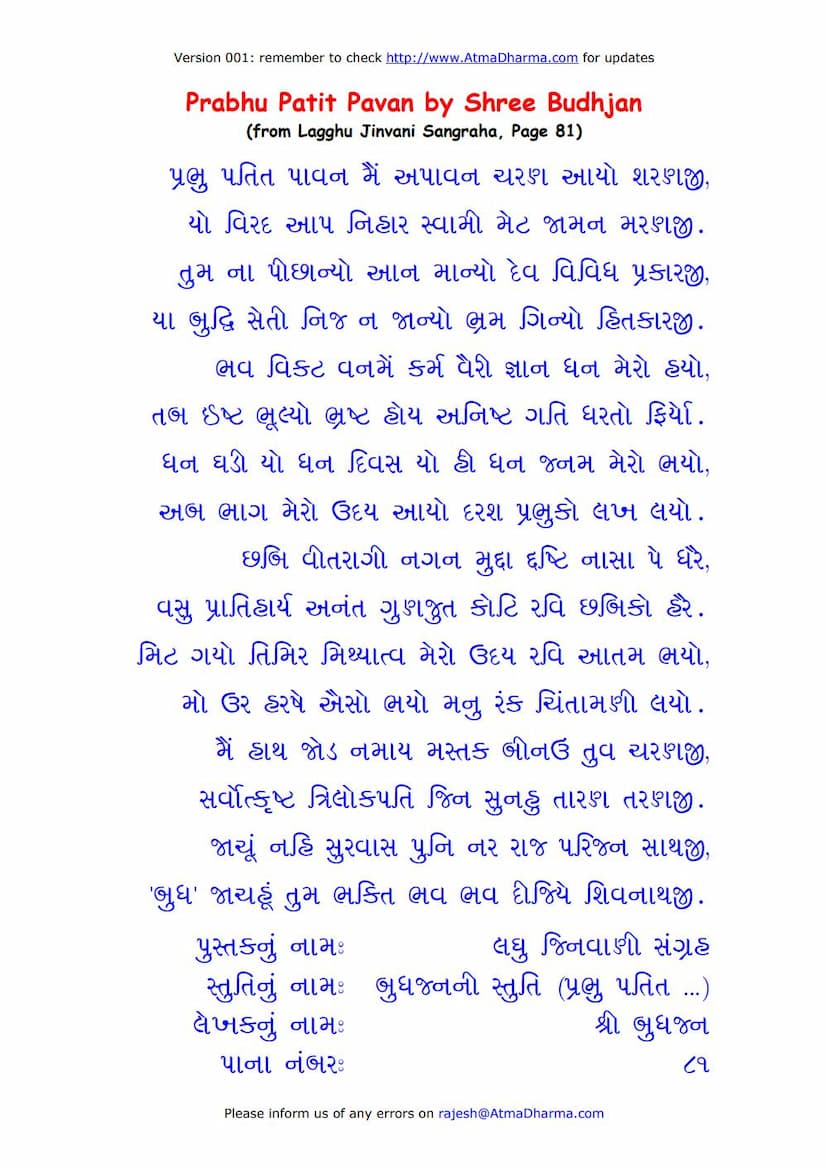 Version 001: remember to check http://www.AtmaDharma.com for updates
Prabhu Patit Pavan by Shree Budhjan
(from Lagghu Jinvani Sangraha, Page 81)
પ્રભુ પતિત પાવન મૈં અપાવન ચરણ આયો શરણજી,
યો વિરદ આપ નિહાર સ્વામી મેટ જામન મરણજી.
તુમ ના પીછાન્યો આન માન્યો દેવ વિવિધ પ્રકારજી,
યા બુદ્ધિ સેતી નિજ ન જાન્યો ભ્રમ ગિન્યો હિતકારજી.
ભવ વિકટ વનમેં કર્મ વૈરી જ્ઞાન ધન મેરો હર્યો,
તબ ઈષ્ટ ભૂલ્યો ભ્રષ્ટ હોય અનિષ્ટ ગતિ ધરતો ફિર્યો.
ધન ઘડી યો ધન દિવસ યો હી ધન જનમ મેરો ભયો,
અબ ભાગ મેરો ઉદય આયો દરશ પ્રભુકો લખ લયો.
છબિ વીતરાગી નગન મુદ્રા દ્દષ્ટિ નાસા પે ધરૈ,
વસુ પ્રાતિહાર્ય અનંત ગુણજુત કોટિ રવિ છબિકો હરૈ.
મિટ ગયો તિમિર મિથ્યાત્વ મેરો ઉદય રવિ આતમ ભયો,
મો ઉર હરષે ઐસો ભયો મનુ રંક ચિંતામણી લયો.
મૈં હાથ જોડ નમાય મસ્તક બીનઉં તુવ ચરણજી,
સર્વોત્કૃષ્ટ ત્રિલોકપતિ જિન સુનહુ તારણ તરણજી.
જાચૂં નહિ સુરવાસ પુનિ નર રાજ પરિજન સાથજી,
'બુધ' જાચહૂં તુમ ભક્તિ ભવ ભવ દીજિયે શિવનાથજી.
પુસ્તકનું નામઃ લઘુ જિનવાણી સંગ્રહ
સ્તુતિનું નામઃ બુધજનની સ્તુતિ (પ્રભુ પતિત ...)
લેખકનું નામઃ શ્રી બુધજન
પાના નંબરઃ ૮૧
Please inform us of any errors on rajesh@AtmaDharma.com